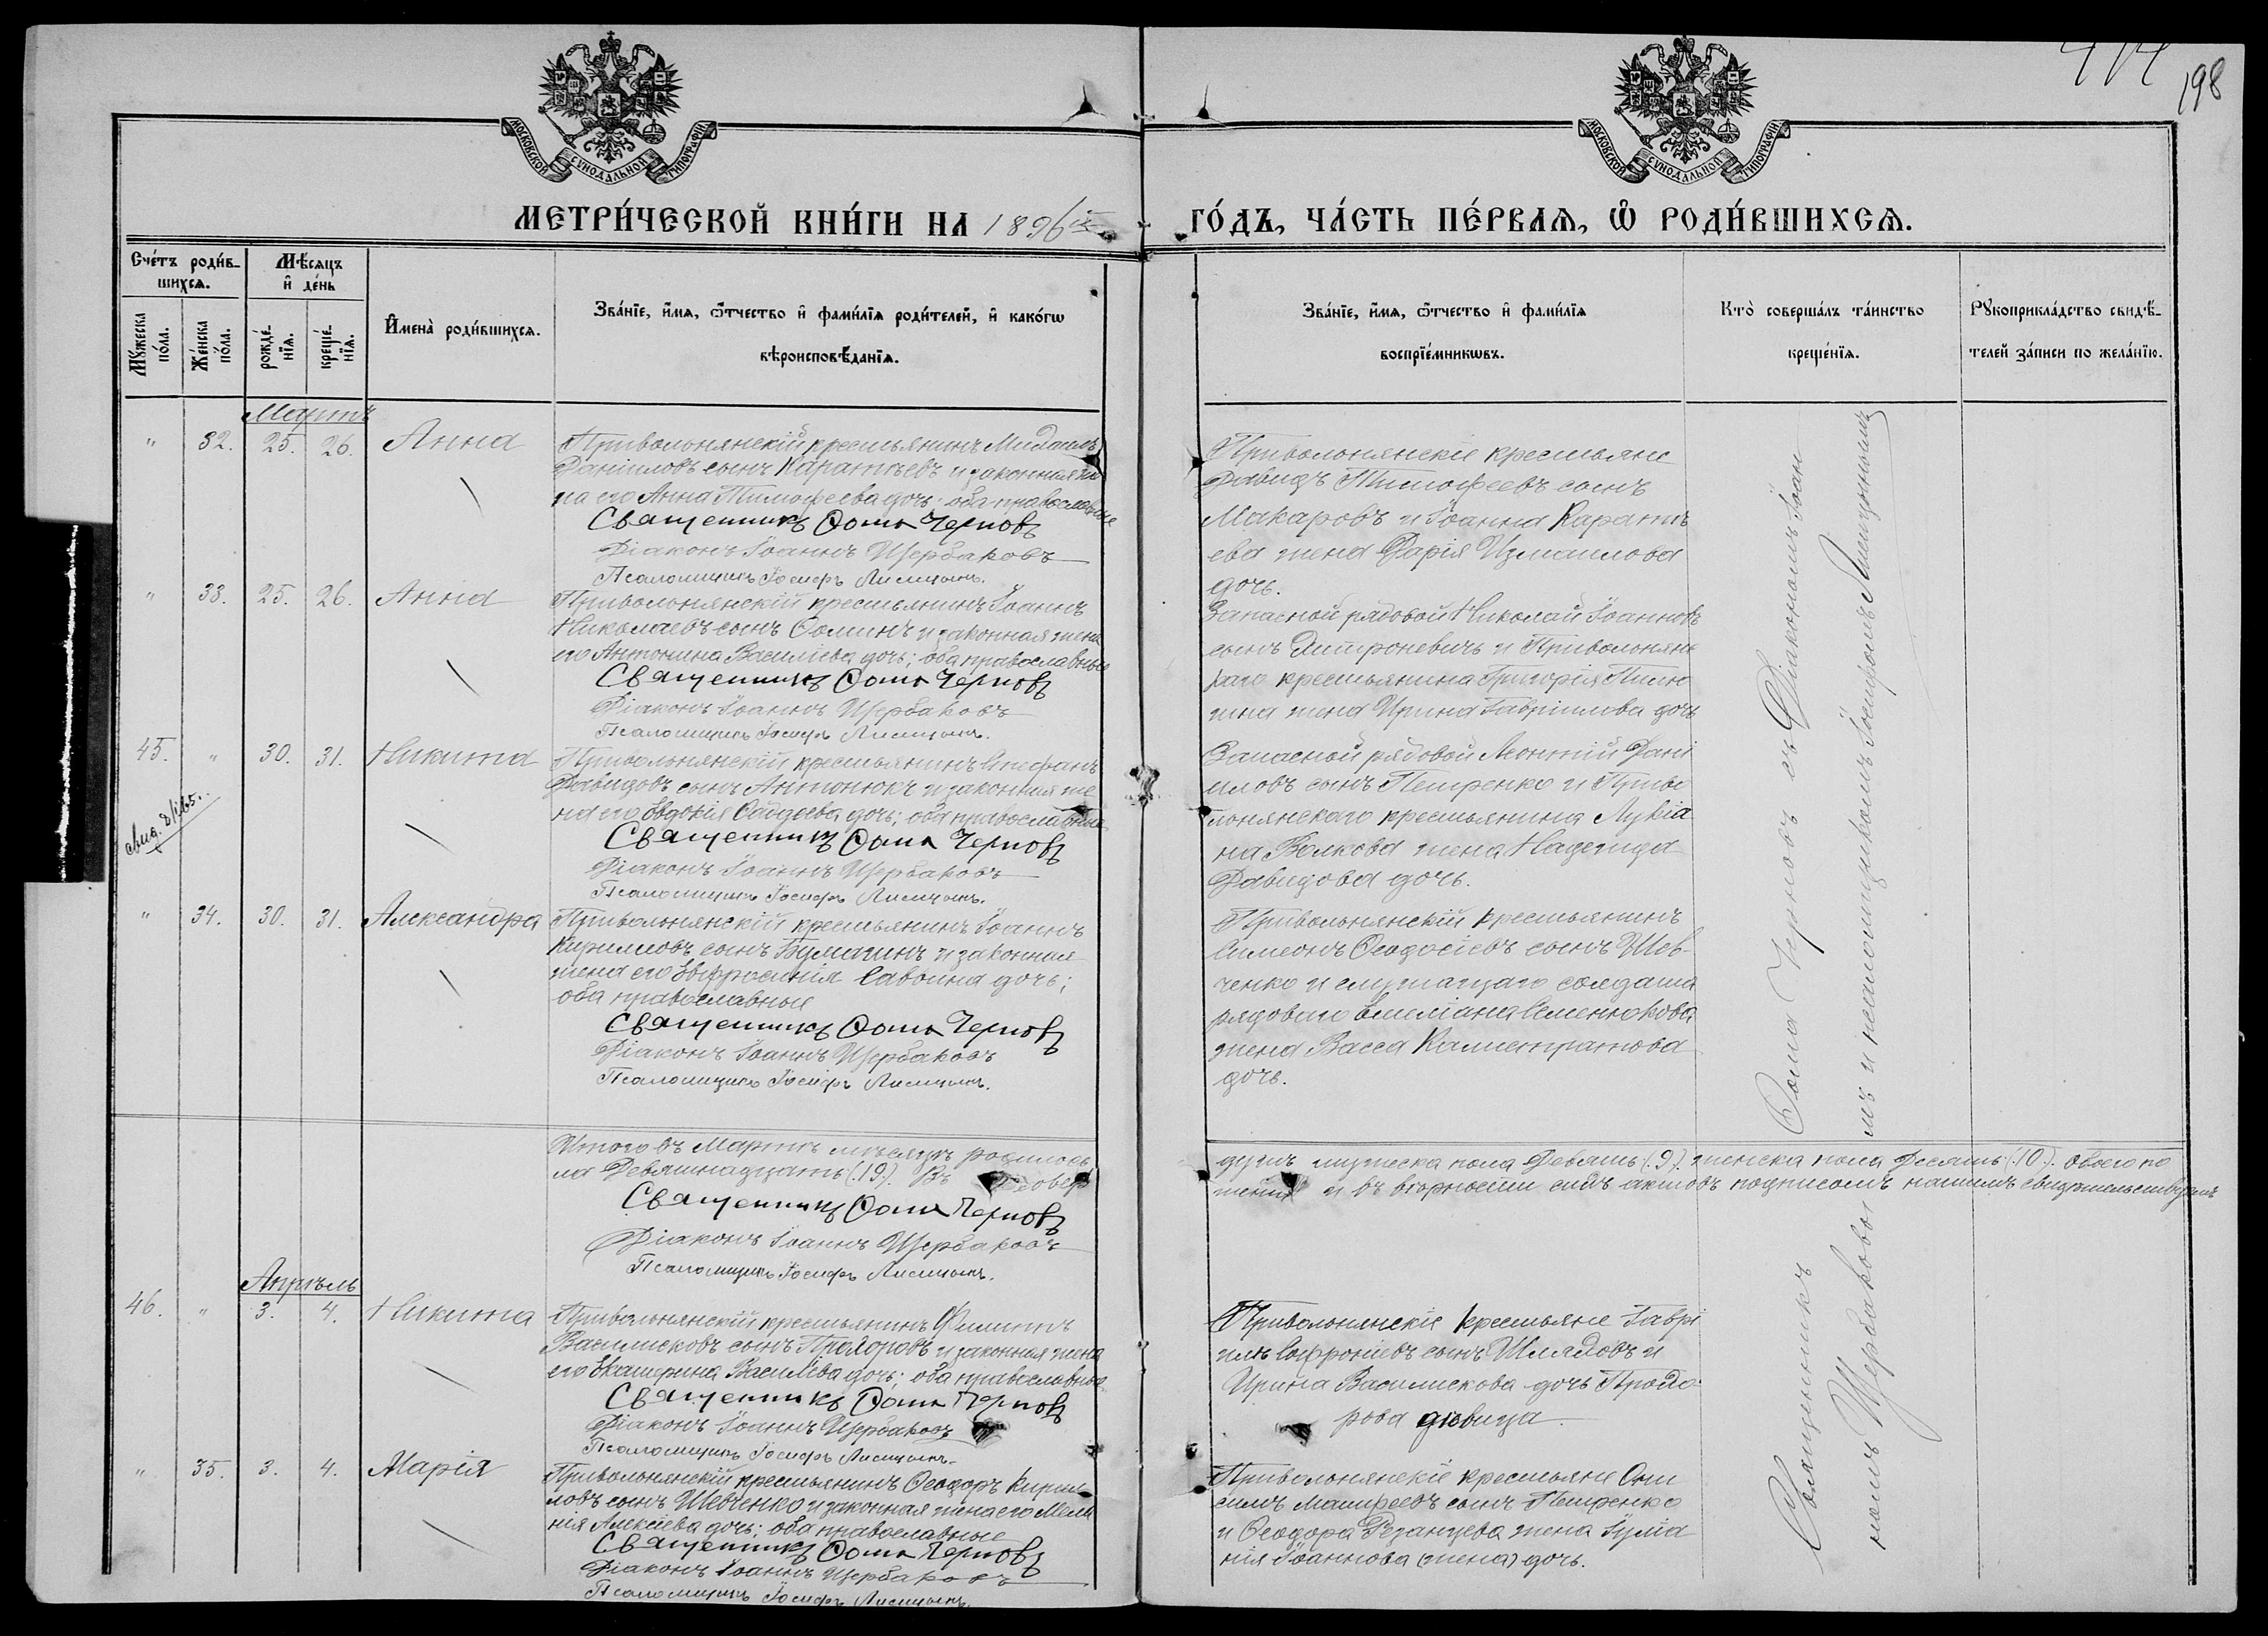 414
198
МОСКОВСКОЙ СѴНОДАЛЬНОЙ ТИПОГРАФІИ
МОСКОВСКОЙ СѴНОДАЛЬНОЙ ТИПОГРАФІИ
МЕТРИ́ЧЕСКОЙ КНИ́ГИ НА 1896й
ГО́ДЪ, ЧА́СТЬ ПЕ́РВАѦ, Ѽ РОДИ́ВШИХСѦ.
Сче́тъ роди́в-
шихсѧ.
Мѣ́сѧцъ
и҆ де́нь
Мꙋ́жеска
по́ла.
Же́нска
по́ла.
рожде́-
нїѧ.
креще́-
нїѧ.
И҆мена̀ роди́вшихсѧ.
Зва́нїе, и҆́мѧ, ѻ҆́тчество и҆ фами́лїѧ роди́телей, и҆ како́гѡ
вѣроисповѣ́данїѧ.
Зва́нїе, и҆́мѧ, ѻ҆́тчество и҆ фами́лїѧ
воспрїе́мникѡвъ.
Кто̀ соверша́лъ та́инство
креще́нїѧ.
Рꙋкоприкла́дство свидѣ́-
телей за́писи по жела́нїю.
Мартъ
" 32. 25. 26. Анна
Привольнянскій крестьянинъ Михаилъ
Даніиловъ сынъ Каратѣевъ и законная же
на его Анна Тимофеева дочь; оба православные
Священникъ Ѳома Черновъ
Діаконъ Іоаннъ Щербаковъ
Псаломщикъ Іосифъ Лисицынъ.
Привольнянскіе крестьяне
Давидъ Тимофеевъ сынъ
Макаровъ и Іоанна Каратѣ
ева жена Дарія Измаилова
дочь.
" 33. 25. 26. Анна
Привольнянскій крестьянинъ Іоаннъ
Николаевъ сынъ Ѳоминъ и законная жена
его Антонина Василіева дочь; оба православные
Священникъ Ѳома Черновъ
Діаконъ Іоаннъ Щербаковъ
Псаломщикъ Іосифъ Лисицынъ.
Запасной рядовой Николай Іоанновъ
сынъ Антроневичъ и Привольнянс
каго крестьянина Григорія
жена Ирина Гавріилова дочь
45. " 30. 31. Никита
Привольнянскій крестьянинъ Стефанъ
Давидовъ сынъ Антонюкъ и законная же
на его Евдокія Ѳаддеева дочь; оба православные
Священникъ Ѳома Черновъ
Діаконъ Іоаннъ Щербаковъ
Псаломщикъ Іосифъ Лисицынъ.
Запасной рядовой Леонтій Дані
иловъ сынъ Петренко и Приво
льнянскаго крестьянина Лукіа
на Волкова жена Надежда
Давидова дочь.
" 34. 30. 31. Александра
Привольнянскій крестьянинъ Іоаннъ
Кирилловъ сынъ Бумагинъ и законная
жена его Евфросинія Савоина дочь;
оба православные
Священникъ Ѳома Черновъ
Діаконъ Іоаннъ Щербаковъ
Псаломщикъ Іосифъ Лисицынъ.
Привольнянскій крестьянинъ
Симеонъ Ѳеодосіевъ сынъ Шев-
ченко и служащаго солдата
рядоваго Емеліана Семенюкова
жена Васса Калистратова
дочь.
Итого въ Мартѣ мѣсяцѣ родилось
ла Девятнадцать (.19.). Въ
Священникъ Ѳома Черновъ
Діаконъ Іоаннъ Щербаковъ
Псаломщикъ Іосифъ Лисицынъ.
мужеска пола Девять (.9.). женска пола Десять (.10.). обоего по
и въ вѣрности сихъ актовъ подписомъ нашимъ свидѣтельствуемъ
Апрѣль
46. " 3. 4. Никита
Привольнянскій крестьянинъ Филиппъ
Василисковъ сынъ Прохоровъ и законная жена
его Екатерина Василіева дочь; оба православные
Священникъ Ѳома Черновъ
Діаконъ Іоаннъ Щербаковъ
Псаломщикъ Іосифъ Лисицынъ.
Привольнянскіе крестьяне Гаврі
илъ Софроніевъ сынъ Шляховъ и
Ирина Василискова дочь Прохо-
рова дѣвица.
" 35. 3. 4. Марія
Привольнянскій крестьянинъ Ѳеодоръ Кирил
ловъ сынъ Шевченко и законная жена его Мела
нія Алексіева дочь; оба православные
Священникъ Ѳома Черновъ
Діаконъ Іоаннъ Щербаковъ
Псаломщикъ Іосифъ Лисицынъ.
Привольнянскіе крестьяне Они
симъ Матфеевъ сынъ Петренко
и Ѳеодора Рязанцева жена Іуліа
нія Іоаннова (жена) дочь.
Священникъ Ѳома Черновъ съ Діакономъ Іоан
номъ Щербаковымъ и псаломщикомъ Іосифомъ Лисицынымъ